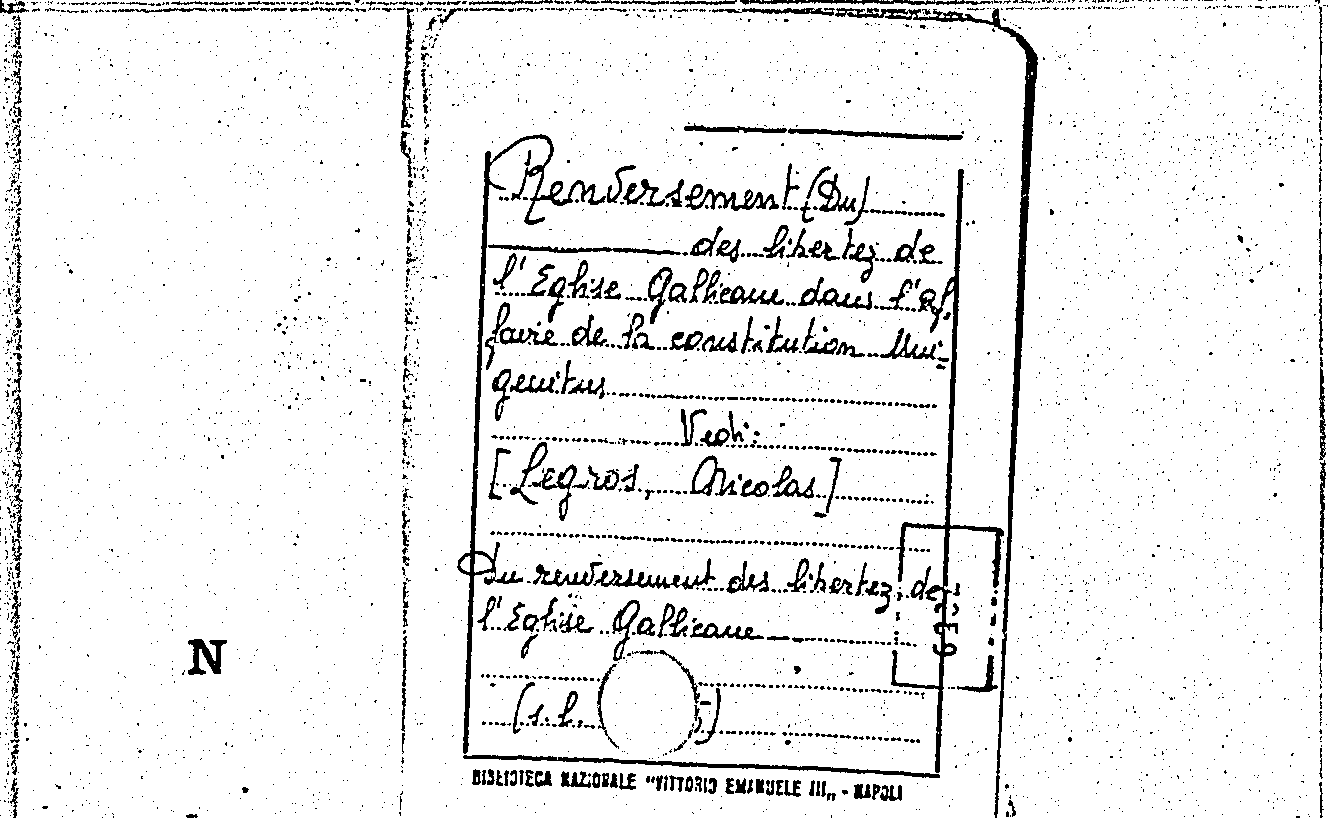 Renversement (Du)
des libertez de
l'Eglise Gallicane dans l'af
faire de la constitution Uni-
genitus
Vedi:
[Legros, Nicolas]
Du renversement des libertez de
l'Eglise Gallicane
N
(s.l.
BIBLIOTECA NAZIONALE "VITTORIO EMANUELE III„ - NAPOLI